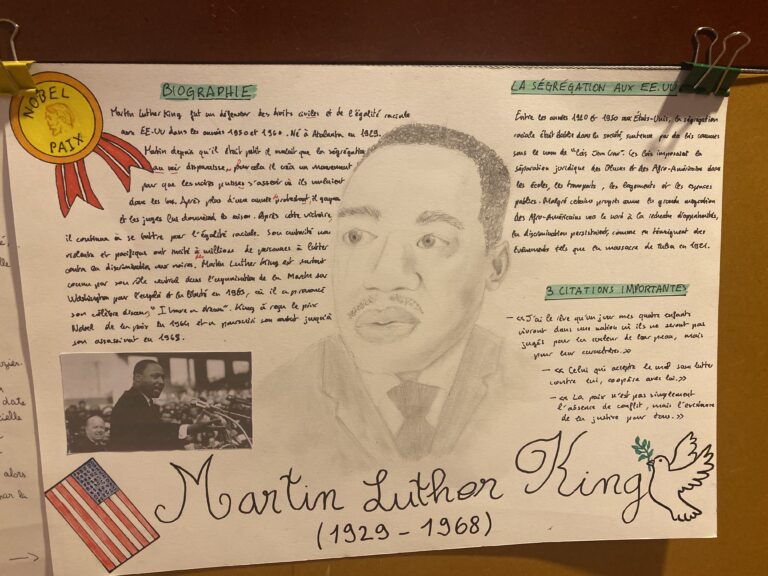 NOBEL
PAIX
BIOGRAPHIE
Martin Luther King fut un défenseur des droits civiles et de l'égalité raciale
aux EE-UU dans les années 1950 et 1960. Né à Atalanta en 1929.
Martin depuis qu'il était petit il voulait que la ségrégation
au noir disparaisse, pour cela il créa un mouvement
pour que les noirs puisses s'asseoir où ils voulaient
dans les bus. Après plus d'une année protestant, il gagna
et les juges lui donnèrent la raison. Après cette victoire,
il continua à se battre pour l'égalité raciale. Son activité non
violente et pacifique ont invité à millions de personnes à lutter
contre la discrimination aux noirs. Martin Luther King est surtout
connu par son rôle central dans l'organisation de la Marche sur
Washington pour l'emploi et la liberté en 1963, où il a prononcé
son célèbre discours, "I have a dream". King a reçu le prix
Nobel de la paix en 1964 et a poursuivi son combat jusqu'à
son assassinat en 1968.
LA SÉGRÉGATION AUX EE.UU
Entre les années 1920 et 1950 aux États-Unis, la ségrégation
raciale était établie dans la société, soutenue par des lois connues
sous le nom de "Lois Jim Crow". Ces lois imposaient la
séparation juridique des Blancs et des Afro-Américains dans
les écoles, les transports, les logements et les espaces
publics. Malgré certains progrès comme la grande migration
des Afro-Américains vers le nord à la recherche d'opportunités,
la discrimination persistait, comme en témoignent des
événements tels que le massacre de Tulsa en 1921.
3 CITATIONS IMPORTANTES
- «J'ai le rêve qu'un jour mes quatre enfants
vivront dans une nation où ils ne seront pas
jugés pour la couleur de leur peau, mais
pour leur caractère.»
- «Celui qui accepte le mal sans lutter
contre lui, coopère avec lui.»
- «La paix n'est pas simplement
l'absence de conflit, mais l'existence
de la justice pour tous.»
Martin Luther King
(1929 - 1968)
date
alors
par la